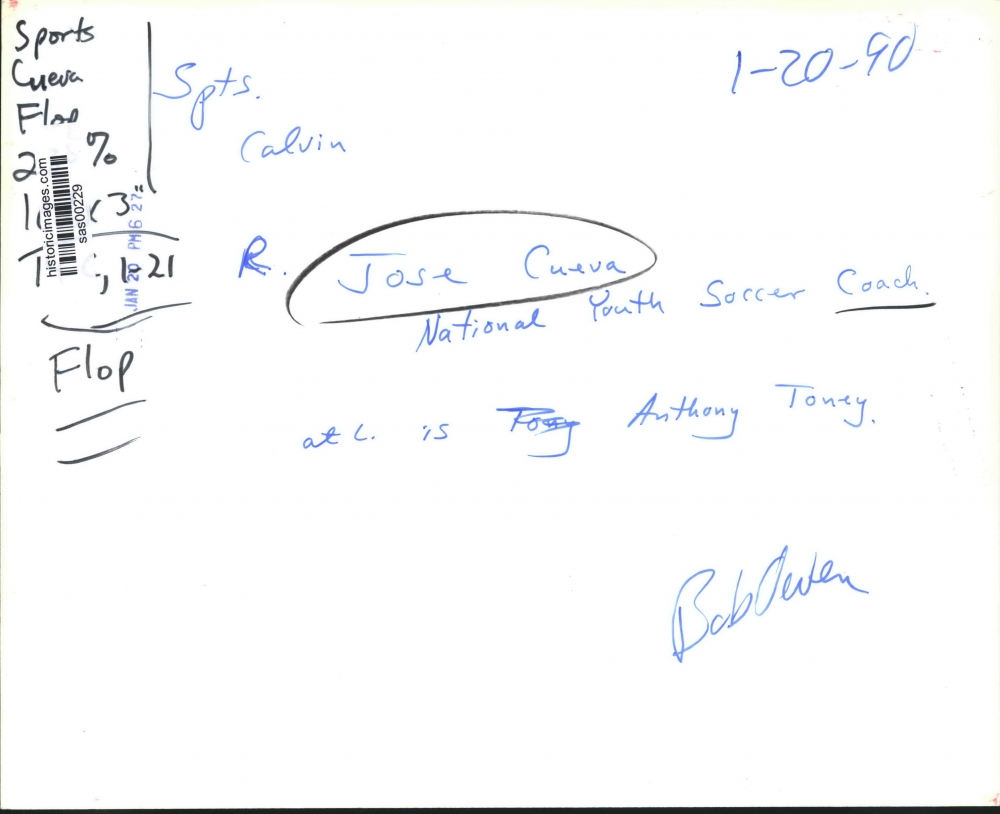 Sports
Cueva
Flop
%
3"
21
Flop
historicimages.com
sas00229
JAN 20 PM 6 27
1-20-90
Spts.
Calvin
R. Jose Cueva
National Youth Soccer Coach.
at L. is Tony Anthony Toney.
Bob Owen